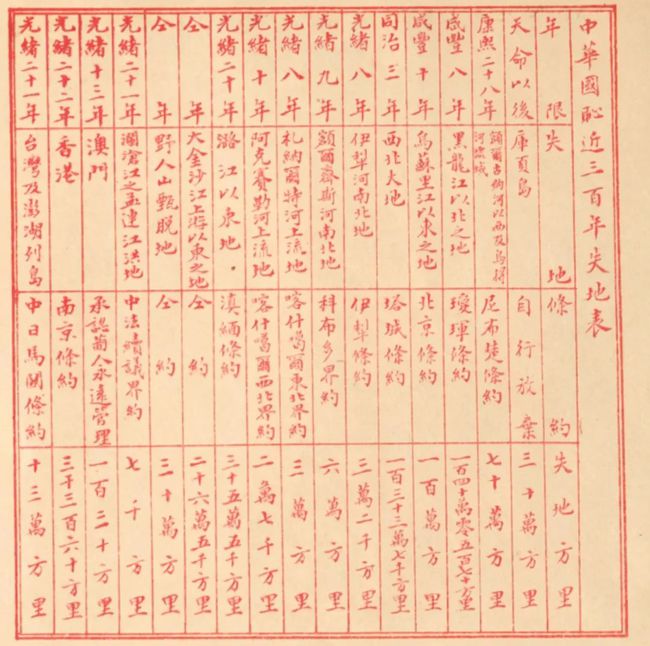 中華國恥近三百年失地表
年限 失地 條約 失地方里
天命以後 庫頁島 自行放棄 三十萬方里
康熙二十八年 額爾古納河以西及烏得河 尼布楚條約 七十萬方里
咸豐八年 黑龍江以北之地 璦琿條約 一百四十萬零五百七十方里
咸豐十年 烏蘇里江以東之地 北京條約 一百萬方里
同治三年 西北大地 塔城條約 一百三十三萬七千方里
光緒八年 伊犁河南北地 伊犁條約 三萬二千方里
光緒九年 額爾齊斯河南北地 科布多界約 六萬方里
光緒八年 札納爾特河上流地 喀什噶爾東北界約 三萬方里
光緒十年 阿克賽勒河上流地 喀什噶爾西北界約 二萬七千方里
光緒二十年 潞江以東地 滇緬條約 三十五萬五千方里
仝年 大金沙江上游以東之地 仝約 二十六萬五千方里
仝年 野人山甄脫地 仝約 三十萬方里
光緒二十一年 瀾滄江之孟連江洪地 中法續議界約 七千方里
光緒十三年 澳門 承認葡人永遠管理 一百二十方里
光緒二十二年 香港 南京條約 三千三百六十方里
光緒二十一年 台灣及澎湖列島 中日馬關條約 十三萬方里